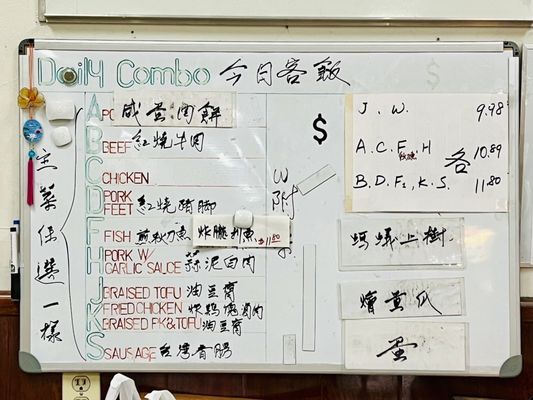 Daily Combo 今日客飯
主菜任選一樣
A PC 咸蛋肉餅
B BEEF 紅燒牛肉
C CHICKEN
D PORK FEET 紅燒豬脚
F FISH 煎秋刀魚 炸臘刺魚 $11.80
H PORK W/ GARLIC SAUCE 蒜泥白肉
J BRAISED TOFU 油豆腐
K FRIED CHICKEN 炸鸡塊
BRAISED PK & TOFU 油豆腐
S SAUSAGE 台灣香腸
W 附
$
J. W. 9.98
A. C. F. H 各 10.89
B. D. F2. K. S. 11.80
螞蟻上樹
燴黄瓜
蛋